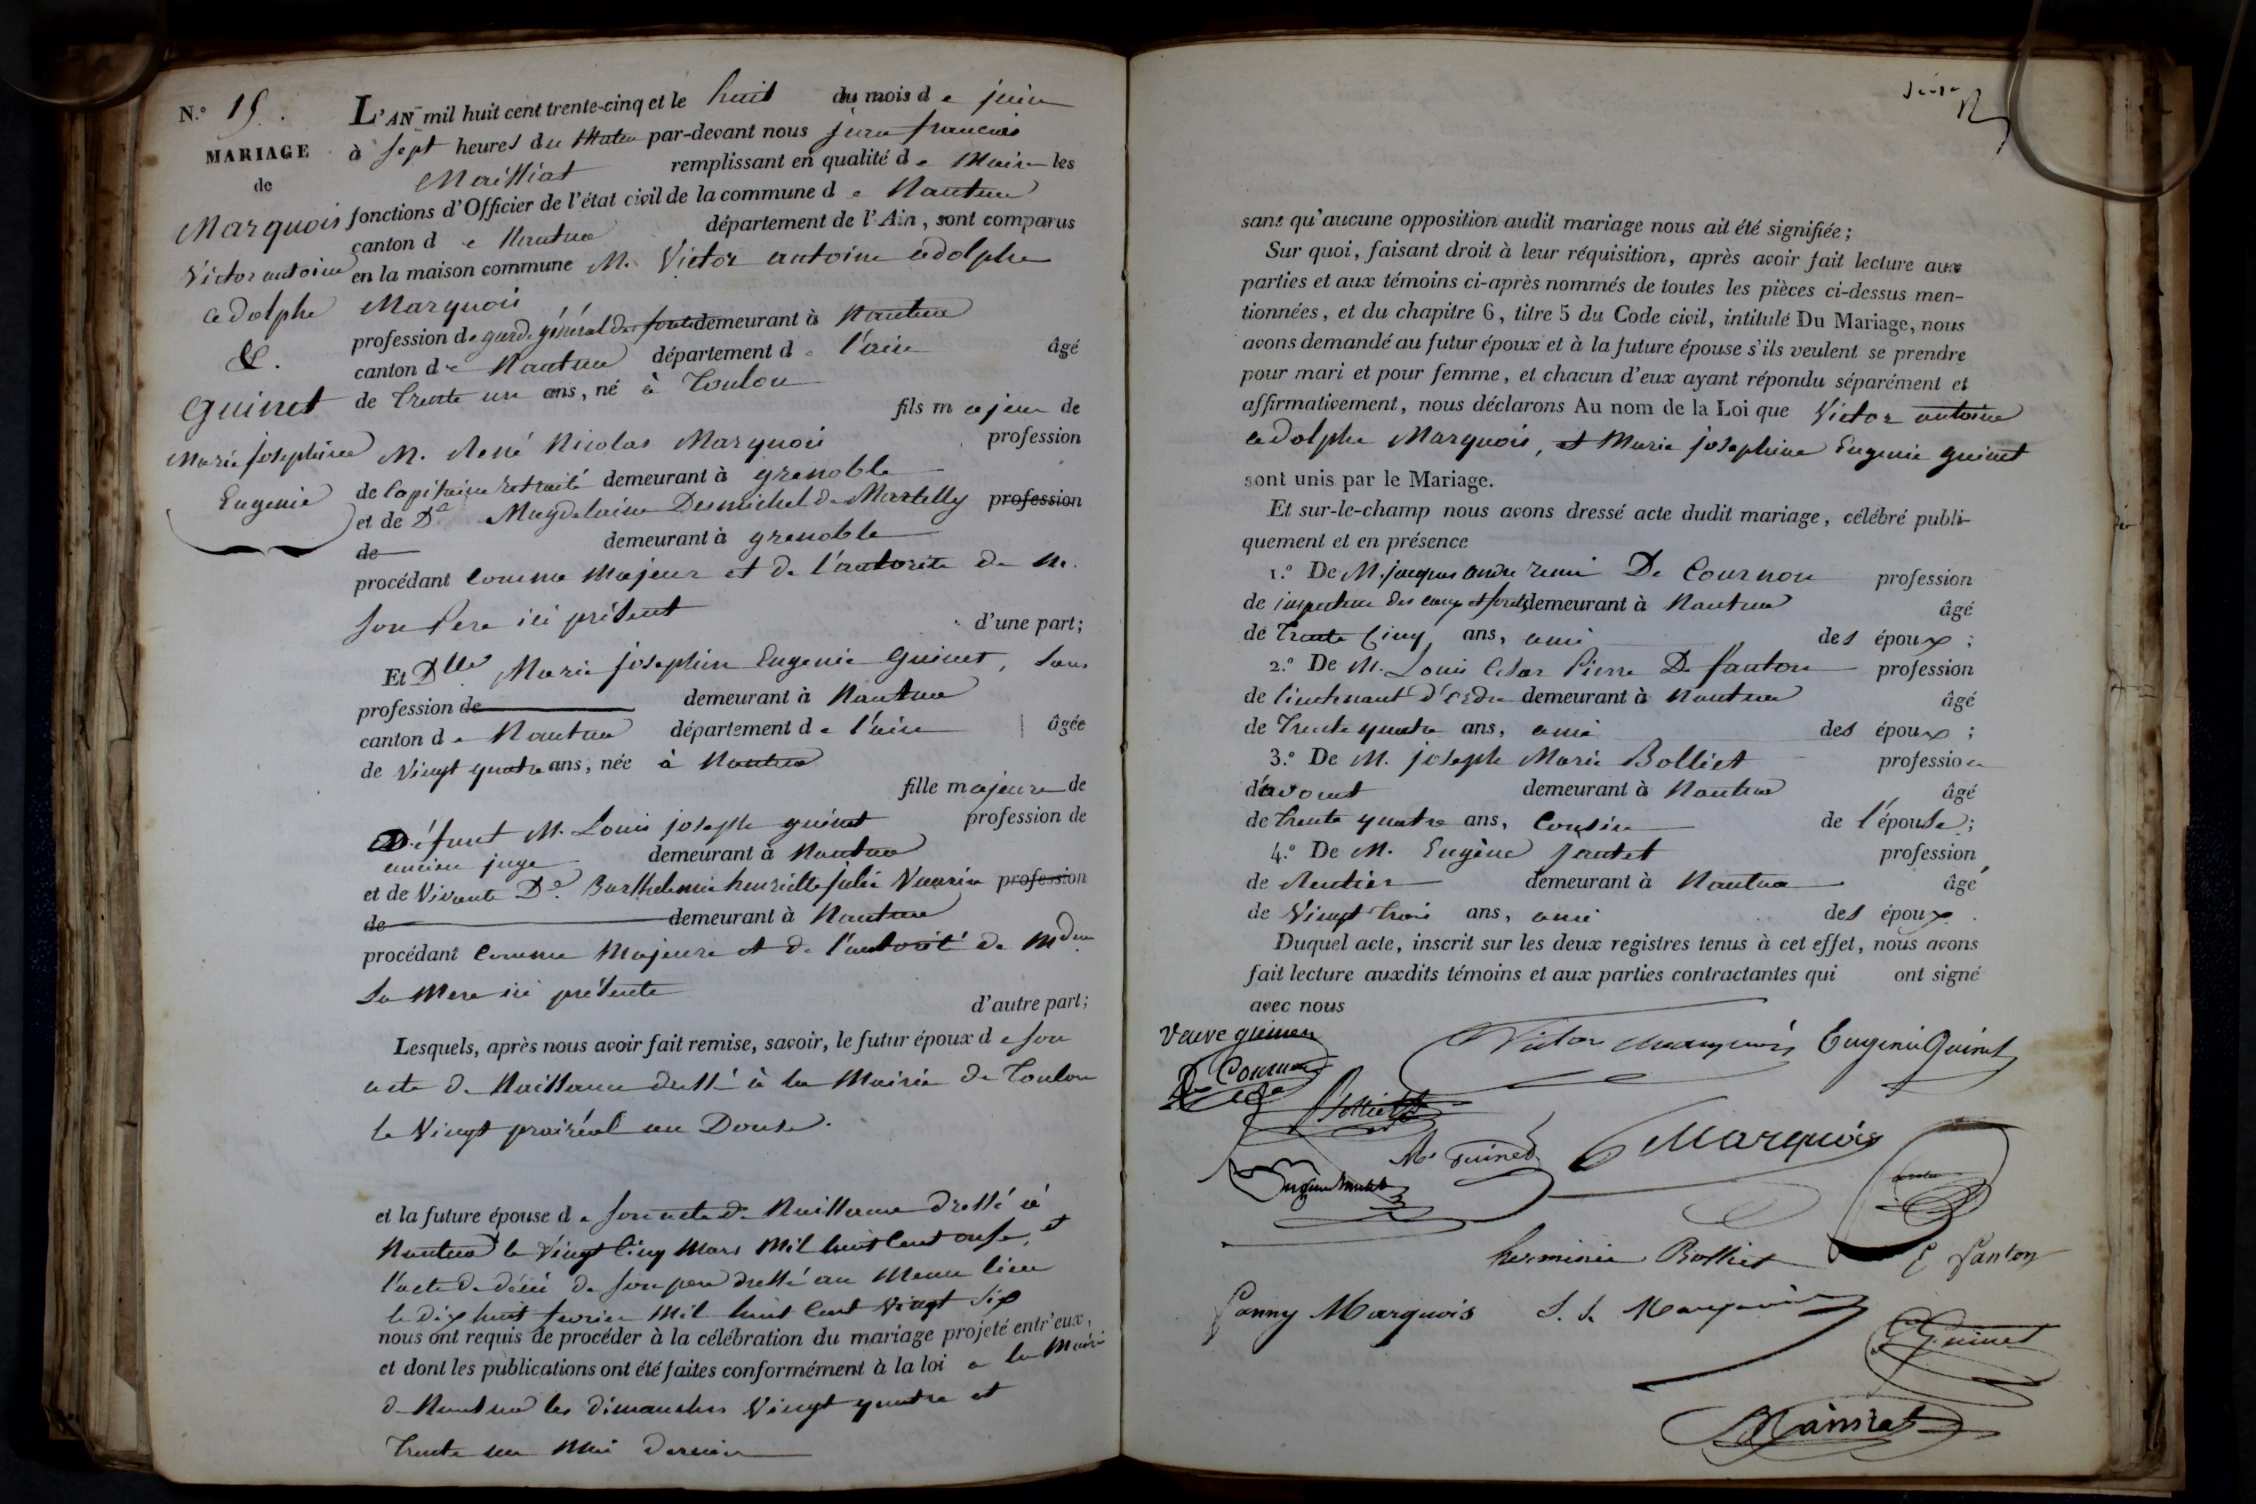 N.° 15.
MARIAGE
de
Marquois
Victor antoine
adolphe
&.
Guinet
Marie josephine
Eugenie
L'AN mil huit cent trente-cinq et le huit du mois de juin
à sept heures du Matin par-devant nous jura francois
Mailliat remplissant en qualité de Maire les
fonctions d'Officier de l'état civil de la commune de Nantua
canton de Nantua département de l'Ain, sont comparus
en la maison commune M. Victor antoine adolphe
Marquois
profession de garde général des forets demeurant à Nantua
canton de Nantua département de l'ain âgé
de trente un ans, né à Toulon
fils majeur de
M. René Nicolas Marquois profession
de Capitaine retraité demeurant à grenoble
et de De Magdelaine Desmichel de Martelly profession
de demeurant à grenoble
procédant comme Majeur et de l'autorité de M.
son Pere ici présent d'une part;
Et Dlle Marie josephine Eugenie Guinet, sans
profession de demeurant à Nantua
canton de Nantua département de l'ain âgée
de Vingt quatre ans, née à Nantua
fille majeure de
Défunt M. Louis joseph guinet profession de
ancien juge demeurant à Nantua
et de Vivante De. Barthelemie henriette julie Vuarin profession
de demeurant à Nantua
procédant comme Majeure et de l'autorité de Mdme
sa Mere ici présente d'autre part;
Lesquels, après nous avoir fait remise, savoir, le futur époux de son
acte de Naissance dressé à la Mairie de Toulon
le Vingt prairéal an Douse.
et la future épouse de son acte de Naissance dressé à
Nantua le Vingt Cinq Mars Mil huit Cent onse, et
l'acte de décès de son pere dressé au Meme lieu
le dix huit fevrier Mil huit Cent Vingt Six
nous ont requis de procéder à la célébration du mariage projeté entr'eux,
et dont les publications ont été faites conformément à la loi a la Mairie
de Nantua les dimanches Vingt quatre et
Trente un Mai dernier
sans qu'aucune opposition audit mariage nous ait été signifiée;
Sur quoi, faisant droit à leur réquisition, après avoir fait lecture aux
parties et aux témoins ci-après nommés de toutes les pièces ci-dessus men-
tionnées, et du chapitre 6, titre 5 du Code civil, intitulé Du Mariage, nous
avons demandé au futur époux et à la future épouse s'ils veulent se prendre
pour mari et pour femme, et chacun d'eux ayant répondu séparément et
affirmativement, nous déclarons Au nom de la Loi que Victor antoine
adolphe Marquois, et Marie josephine Eugenie guinet
sont unis par le Mariage.
Et sur-le-champ nous avons dressé acte dudit mariage, célébré publi-
quement et en présence
1.° De M. jacques andre remi De Cournon profession
de inspecteur des eaux et forets demeurant à Nantua âgé
de Trente Cinq ans, ami des époux;
2.° De M. Louis Cesar Pierre De fanton profession
de lieutenant demeurant à Nantua âgé
de Trente quatre ans, ami des époux;
3.° De M. joseph Marie Bolliet profession
d'avouet demeurant à Nantua âgé
de trente quatre ans, Cousin de l'épouse;
4.° De M. Eugène jantet profession
de Rentier demeurant à Nantua âgé
de Vingt trois ans, ami des époux.
Duquel acte, inscrit sur les deux registres tenus à cet effet, nous avons
fait lecture auxdits témoins et aux parties contractantes qui ont signé
avec nous
Veuve guinet Victor Marquois Eugenie Guinet
De Cournon
Bolliet
Marquois
M. Guinet
Eugene Jantet
herminie Bolliet
fanton
Fanny Marquois Marquois
Guinet
Mailliat